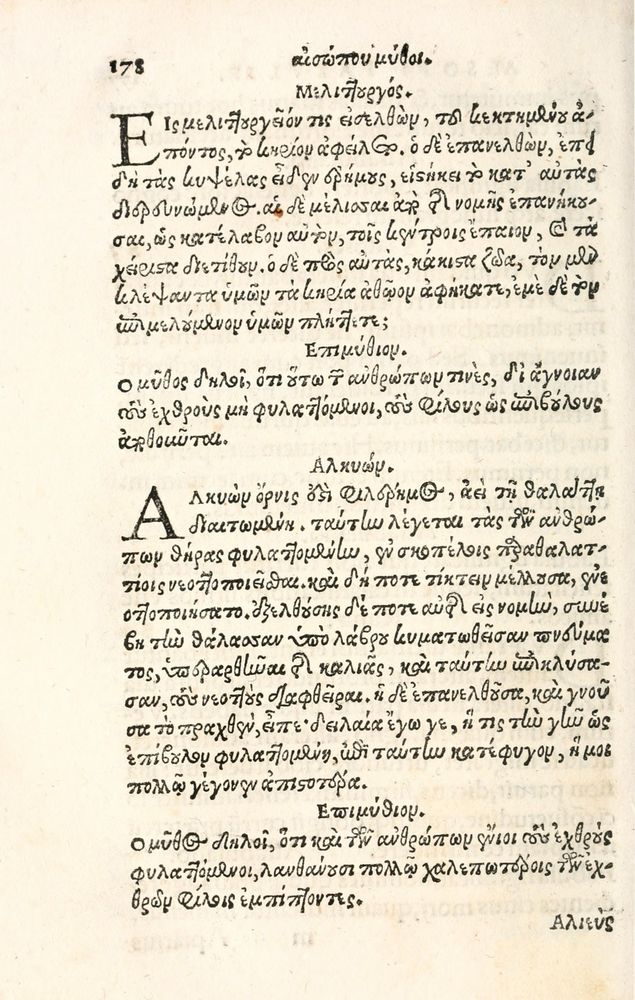 178 αἰσώπου μῦθοι.
Μελιτȣργός.
Εἰς μελιτȣργεῖόν τις εἰσελθὼν, τοῦ κεκτημένȣ ἀ-
πόντος, τὸ κηρίον ἀφείλετο. ὁ δὲ ἐπανελθὼν, ἐπει
δὴ τὰς κυψέλας εἶδεν ἐρήμȣς, εἱστήκει τὸ κατ' αὐτὰς
διερευνώμενος. αἱ δὲ μέλισσαι ἀπὸ τῆς νομῆς ἐπανήκȣ-
σαι, ὡς κατέλαβον αὐτὸν, τοῖς κέντροις ἔπαιον, καὶ τὰ
χείριστα διετίθȣν. ὁ δὲ πρὸς αὐτὰς, κάκιστα ζῶα, τὸν μὲν
κλέψαντα ὑμῶν τὰ κηρία ἀθῶον ἀφήκατε, ἐμὲ δὲ τὸν
ἐπιμελȣ́μενον ὑμῶν πλήττετε;
Επιμύθιον.
Ο μῦθος δηλοῖ, ὅτι ȣ̔́τω τῶν ἀνθρώπων τινὲς, δι' ἄγνοιαν
τοὺς ἐχθροὺς μὴ φυλαττόμενοι, τοὺς φίλȣς ὡς ἐπιβȣ́λȣς
ἀπωθοῦνται.
Αλκυών.
Αλκυὼν ὄρνις ἐστὶ φιλέρημος, ἀεὶ τῇ θαλάττῃ
διαιτωμένη. ταύτην λέγεται τὰς τῶν ἀνθρώ-
πων θήρας φυλαττομένην, ἐν σκοπέλοις παραθαλατ-
τίοις νεοττοποιεῖσθαι. καὶ δή ποτε τίκτειν μέλλȣσα, ἐνε
οττοποιήσατο. ἐξελθȣ́σης δέ ποτε αὐτῆς εἰς νομὴν, συνέ
βη τὴν θάλασσαν ὑπὸ λάβρȣ κυματωθεῖσαν πνεύμα
τος, ὑπεραρθῆναι τῆς καλιᾶς, καὶ ταύτην ἐπικλύσα-
σαν, τοὺς νεοττοὺς διαφθεῖραι. ἡ δὲ ἐπανελθοῦσα, καὶ γνοῦ
σα τὸ πραχθὲν, εἶπε· δειλαία ἔγωγε, ἥτις τὴν γῆν ὡς
ἐπίβȣλον φυλαττομένη, ἐπὶ ταύτην κατέφυγον, ἥ μοι
πολλῷ γέγονεν ἀπιστοτέρα.
Επιμύθιον.
Ο μῦθος δηλοῖ, ὅτι καὶ τῶν ἀνθρώπων ἔνιοι τοὺς ἐχθροὺς
φυλαττόμενοι, λανθάνȣσι πολλῷ χαλεπωτέροις τῶν ἐχ-
θρῶν φίλοις ἐμπίπτοντες.
Αλιεὺς